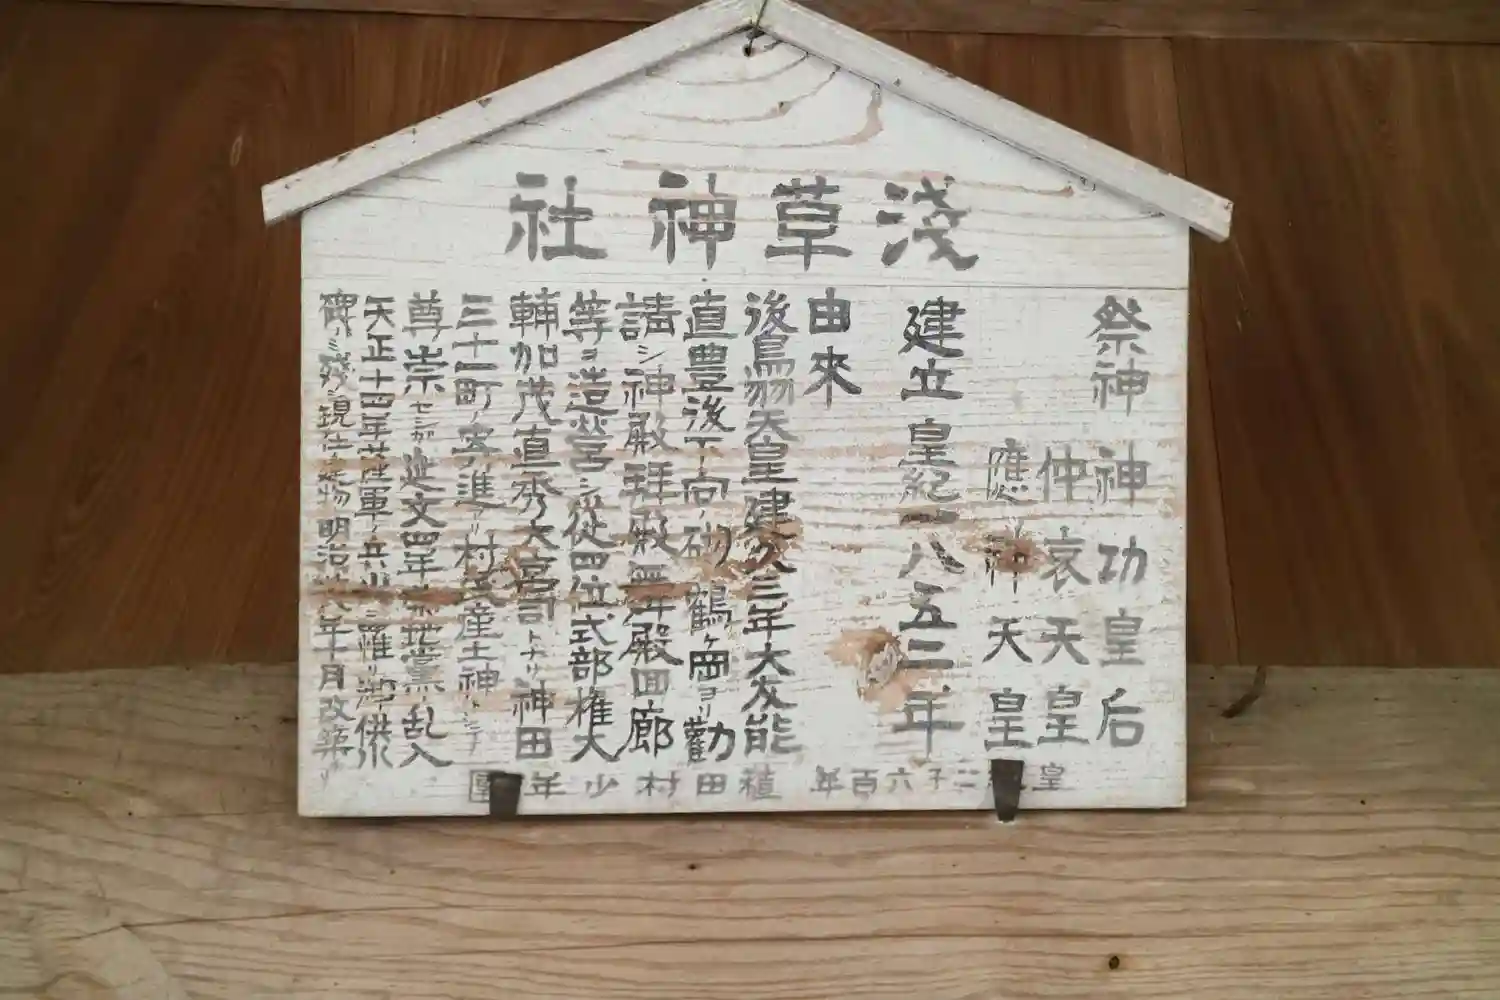 淺草神社
祭神 神功皇后
仲哀天皇
應神天皇
建立 皇紀一八五二年
由來
後鳥羽天皇建久三年大友能
直豊後下向ノ砌鶴ケ岡ヨリ勸
請シ神殿拜殿舞殿囬廊
等ヲ造営シ從四位式部権大
輔加茂直秀大宮司トナリ神田
三十一町ノ寄進アリ村民産土神トシテ
尊崇セシガ延文四年 地黨乱入
天正十四年 軍ノ兵火ニ罹リ 供
碑ノミ殘ル現社建物明治 八年 月改築ナリ
皇紀二千六百年 植田村少年團